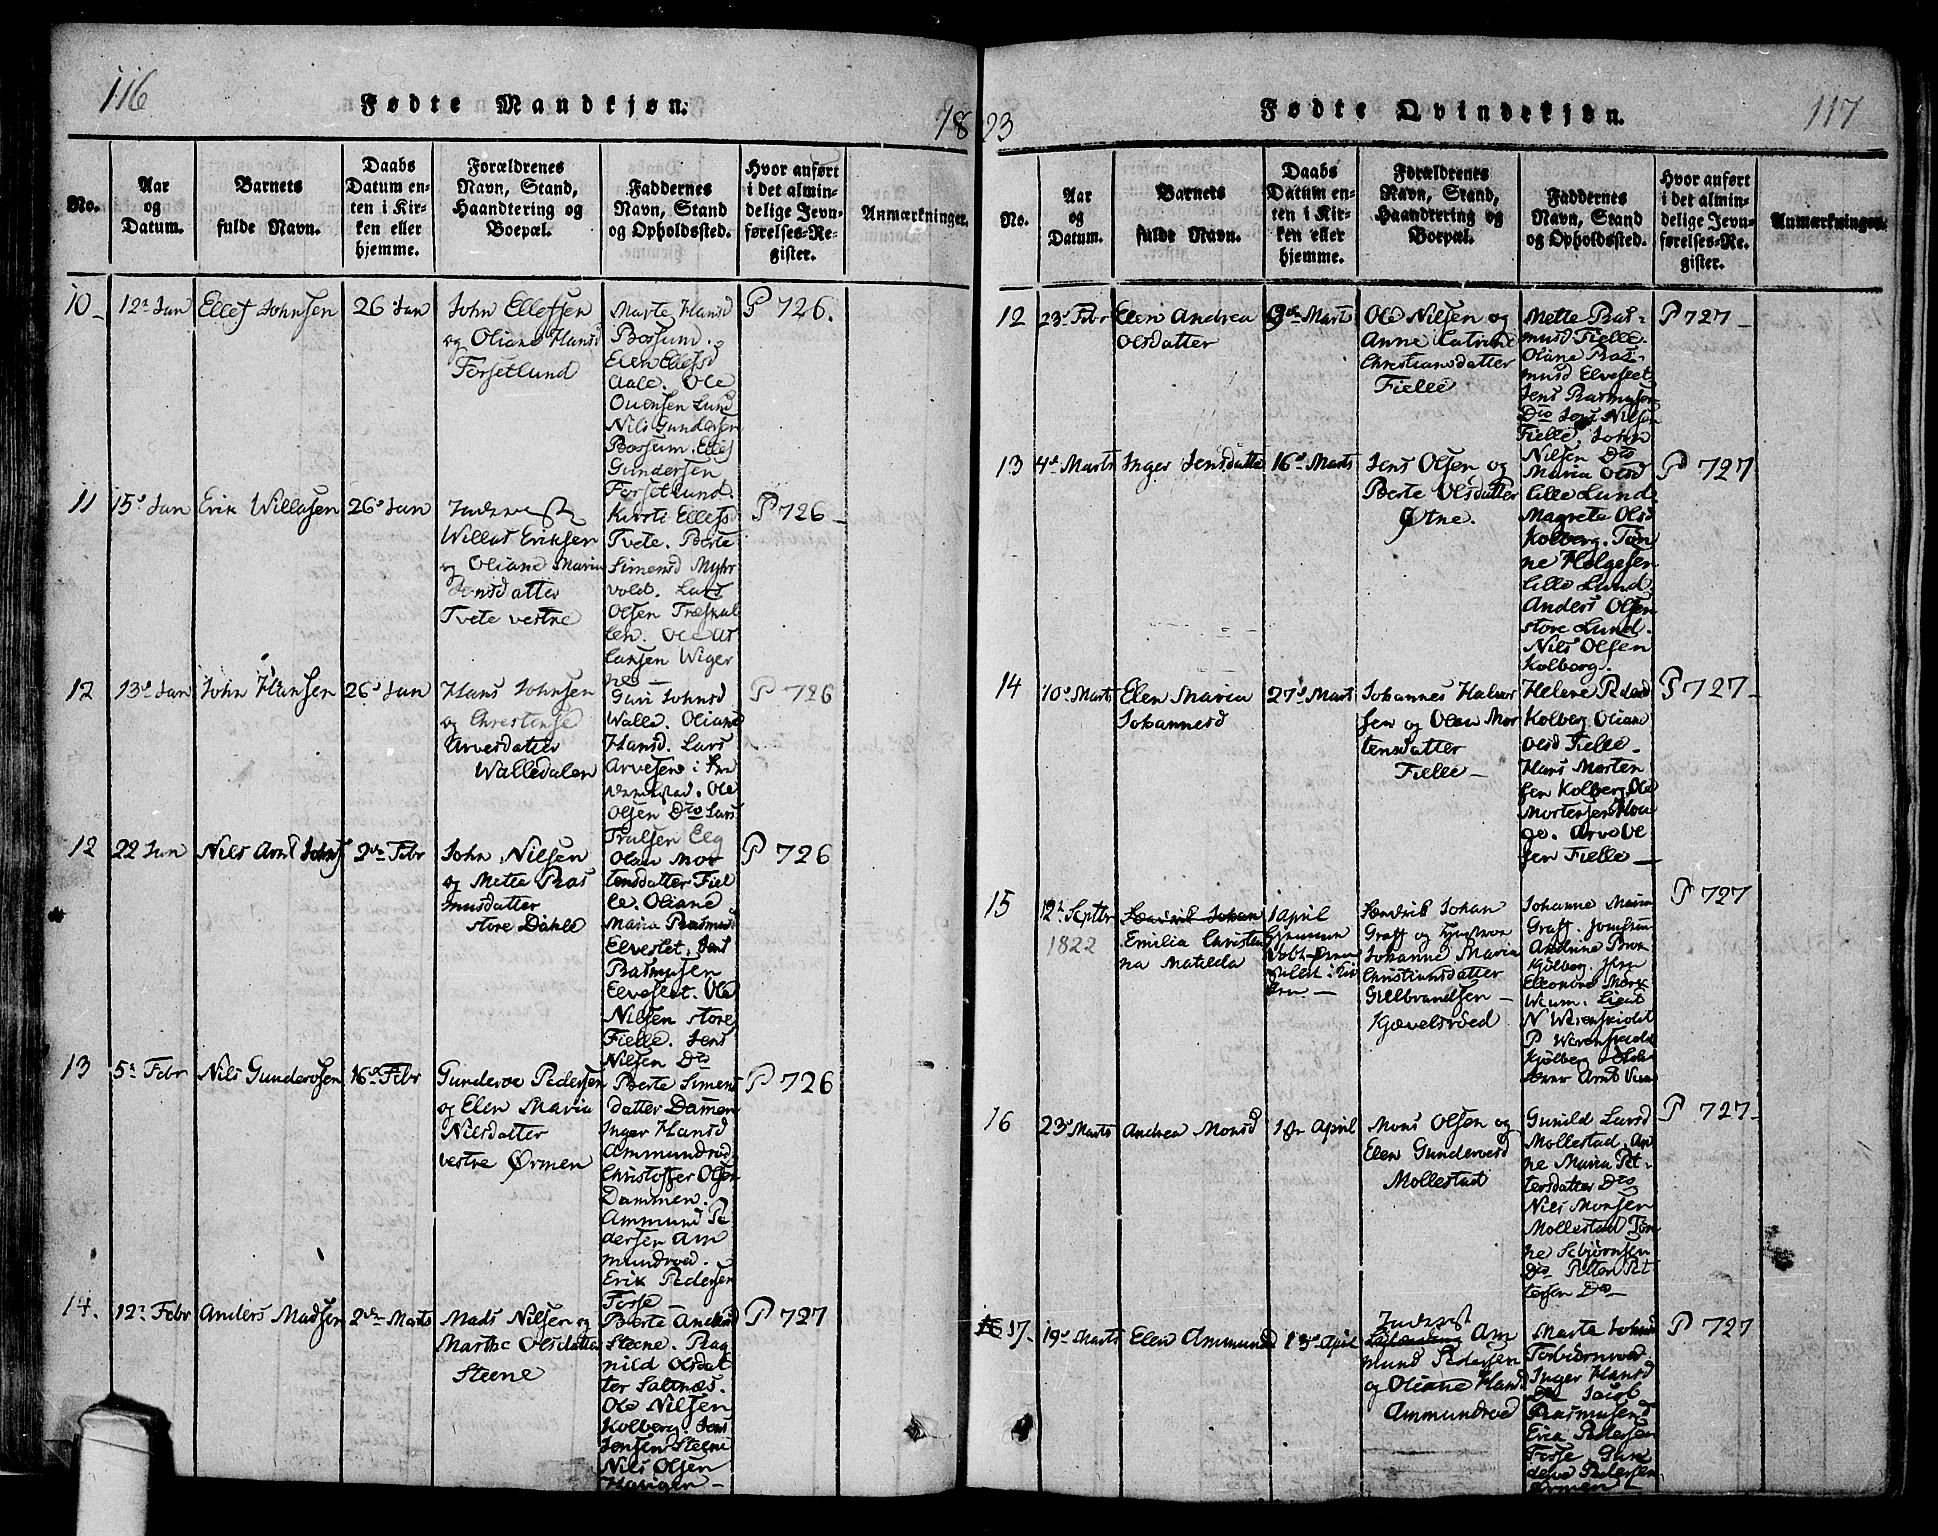 116
Fødte Mandkjøn.
18
No.
Aar
og
Datum.
Barnets
fulde Navn.
Daabs
Datum en-
ten i Kir-
ken eller
hjemme.
Forældrenes
Navn, Stand,
Haandtering og
Boepæl.
Faddernes
Navn, Stand
og Opholdssted.
Hvor anført
i det almin-
delige Jevn-
førelses-Re-
gister.
Anmærkninger.
10
12te Jan
Ellef Johnsen
26 Jan
John Ellefsen
og Oliane Hansd
Forsetlund
Marte Hansd
Bossum.
Elen Ellefsd
Aale. Ole
Ouensen Lund
Nils Gundersen
Bossum. Ellef
Gundersen
Forsetlund.
P 726.
11
15d Jan
Erik Willasen
26d Jan
Indervist
Willas Eriksen
og Oliane Maria
Jensdatter
Tvete vestre
Kirsti Ellefsd
Tvete. Berte
Simensd Myhr
vold. Lars
Olsen Træskal
len. Ole
Larsen Wiger
nes
P 726
12
13d Jan
John Hansen
26d Jan
Hans Johnsen
og Christense
Arvesdatter
Walledalen
Guri Johnsd
Walle. Oliane
Hansd. Lars
Arvesen i
Ole
Olsen Do Lars
Trulsen Elg
P 726
12
22 Jan
Nils Arnt Johns
2den Febr
John Nilsen
og Mette Ras
musdatter
store Dahle
Olau Mor
tensdatter Fiel
le. Oliane
Maria Rasmusd
Elveslet. Jens
Rasmusen
Elveslet. Ole
Nilsen store
Fielle. Jens
Nilsen Do
P 726
13
5te Febr
Nils Gundersen
16d Febr
Gunderve Pedersen
og Elen Maria
Nilsdatter
vestre Ørmen
Berte Simens
datter Dammen
Inger Hansd
Ammundrød
Christoffer Olsen
Dammen.
Ammund Pe
dersen Am
mundroed.
Erik Pedersen
Fosse
P 726
14.
12te Febr
Anders Madsen
2den Marts
Mads Nilsen og
Marthe Olsdatter
Steene
Berte Andersd
Steene. Rag
nild Olsdat
ter Saltnæs.
Ole Nilsen
Kolberg. Jens
Jonsen Steene
Nils Olsen
Haugen
P 727
23
Fødte Qvindekjøn.
117
No.
Aar
og
Datum.
Barnets
fulde Navn.
Daabs
Datum en-
ten i Kir-
ken eller
hjemme.
Forældrenes
Navn, Stand,
Haandtering og
Boepæl.
Faddernes
Navn, Stand
og Opholdssted.
Hvor anført
i det almin-
delige Jevn-
førelses-Re-
gister.
Anmærkninger.
12
23d Febr
Elen Andrea
Olsdatter
9de Marts
Ole Nilsen og
Anne Catrine
Christiansdatter
Fielle
Mette Ras-
musd Fielle.
Oliane Ras-
musd Elveslet
Jens Rasmusen
Do Jens Nilsen
Fielle. John
Nilsen Do
P 727
13
4de Marts
Inger Jensdatter
16d Marts
Jens Olsen og
Berte Olsdatter
Øtne.
Maria Olsd
Lille Lund
Magrete Olsd
Kolberg. Tøn
ne Helgesen
Lille Lund
Anders Olsen
store Lund.
Nils Olsen
Kolberg.
P 727
14
10d Marts
Elen Maria
Johannesd
27d Marts
Johannes Halvor
sen og Olea Mor
tensdatter
Fielle
Helene Pedersd
Kolberg. Oliane
Olsd Fielle.
Hans Morten
sen Kolberg. Ole
Mortensen Hou
ge. Arve Ol
sen Fielle
P 727
15
12te Septbr
1822
Emilia Christia
na Matilda
1 April
Fændrik Johan
Graff og Hustrue
Johanne Maria
Christiansdatter
Gulbrandsen
Kjævelsroed
Johanne Maria
Graff. Jomfrue
Andrine
Kjølberg.
Eleonore Mork
N Werenskiold
P Werenskiold
Kjølberg
P 727
16
23d Marts
Andrea Monsd
1ste April
Mons Olsen og
Elen Gundervesd
Mollestad
Gunild Larsd
Mollestad. An
ne Maria Pet-
tersdatter Do
Nils Monsen
Mollestad Tøn
ne Sebjørnsen
Do Petter Pet
tersen Do
P 727
17.
19d Marts
Elen Ammundsd
13d April
Indervist
Am
mund Pedersen
og Oliane Hansd
Ammundroed
Marte Johnsd
Torbiørnroed
Inger Hansd
Do Jacob
Rasmusend
Erik Pedersen
Fosse Gun
derve Pedersen
Ørmen
P 727